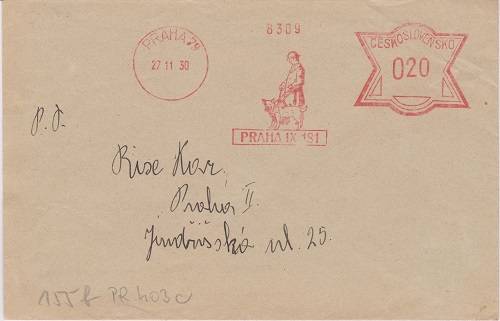 8309
PRAHA 28
27 11 30
ČESKOSLOVENSKO
020
PRAHA IX 181
P. T.
Rise Kar.
Praha II.
Jindřišská ul. 25.
155 f PR 403 c